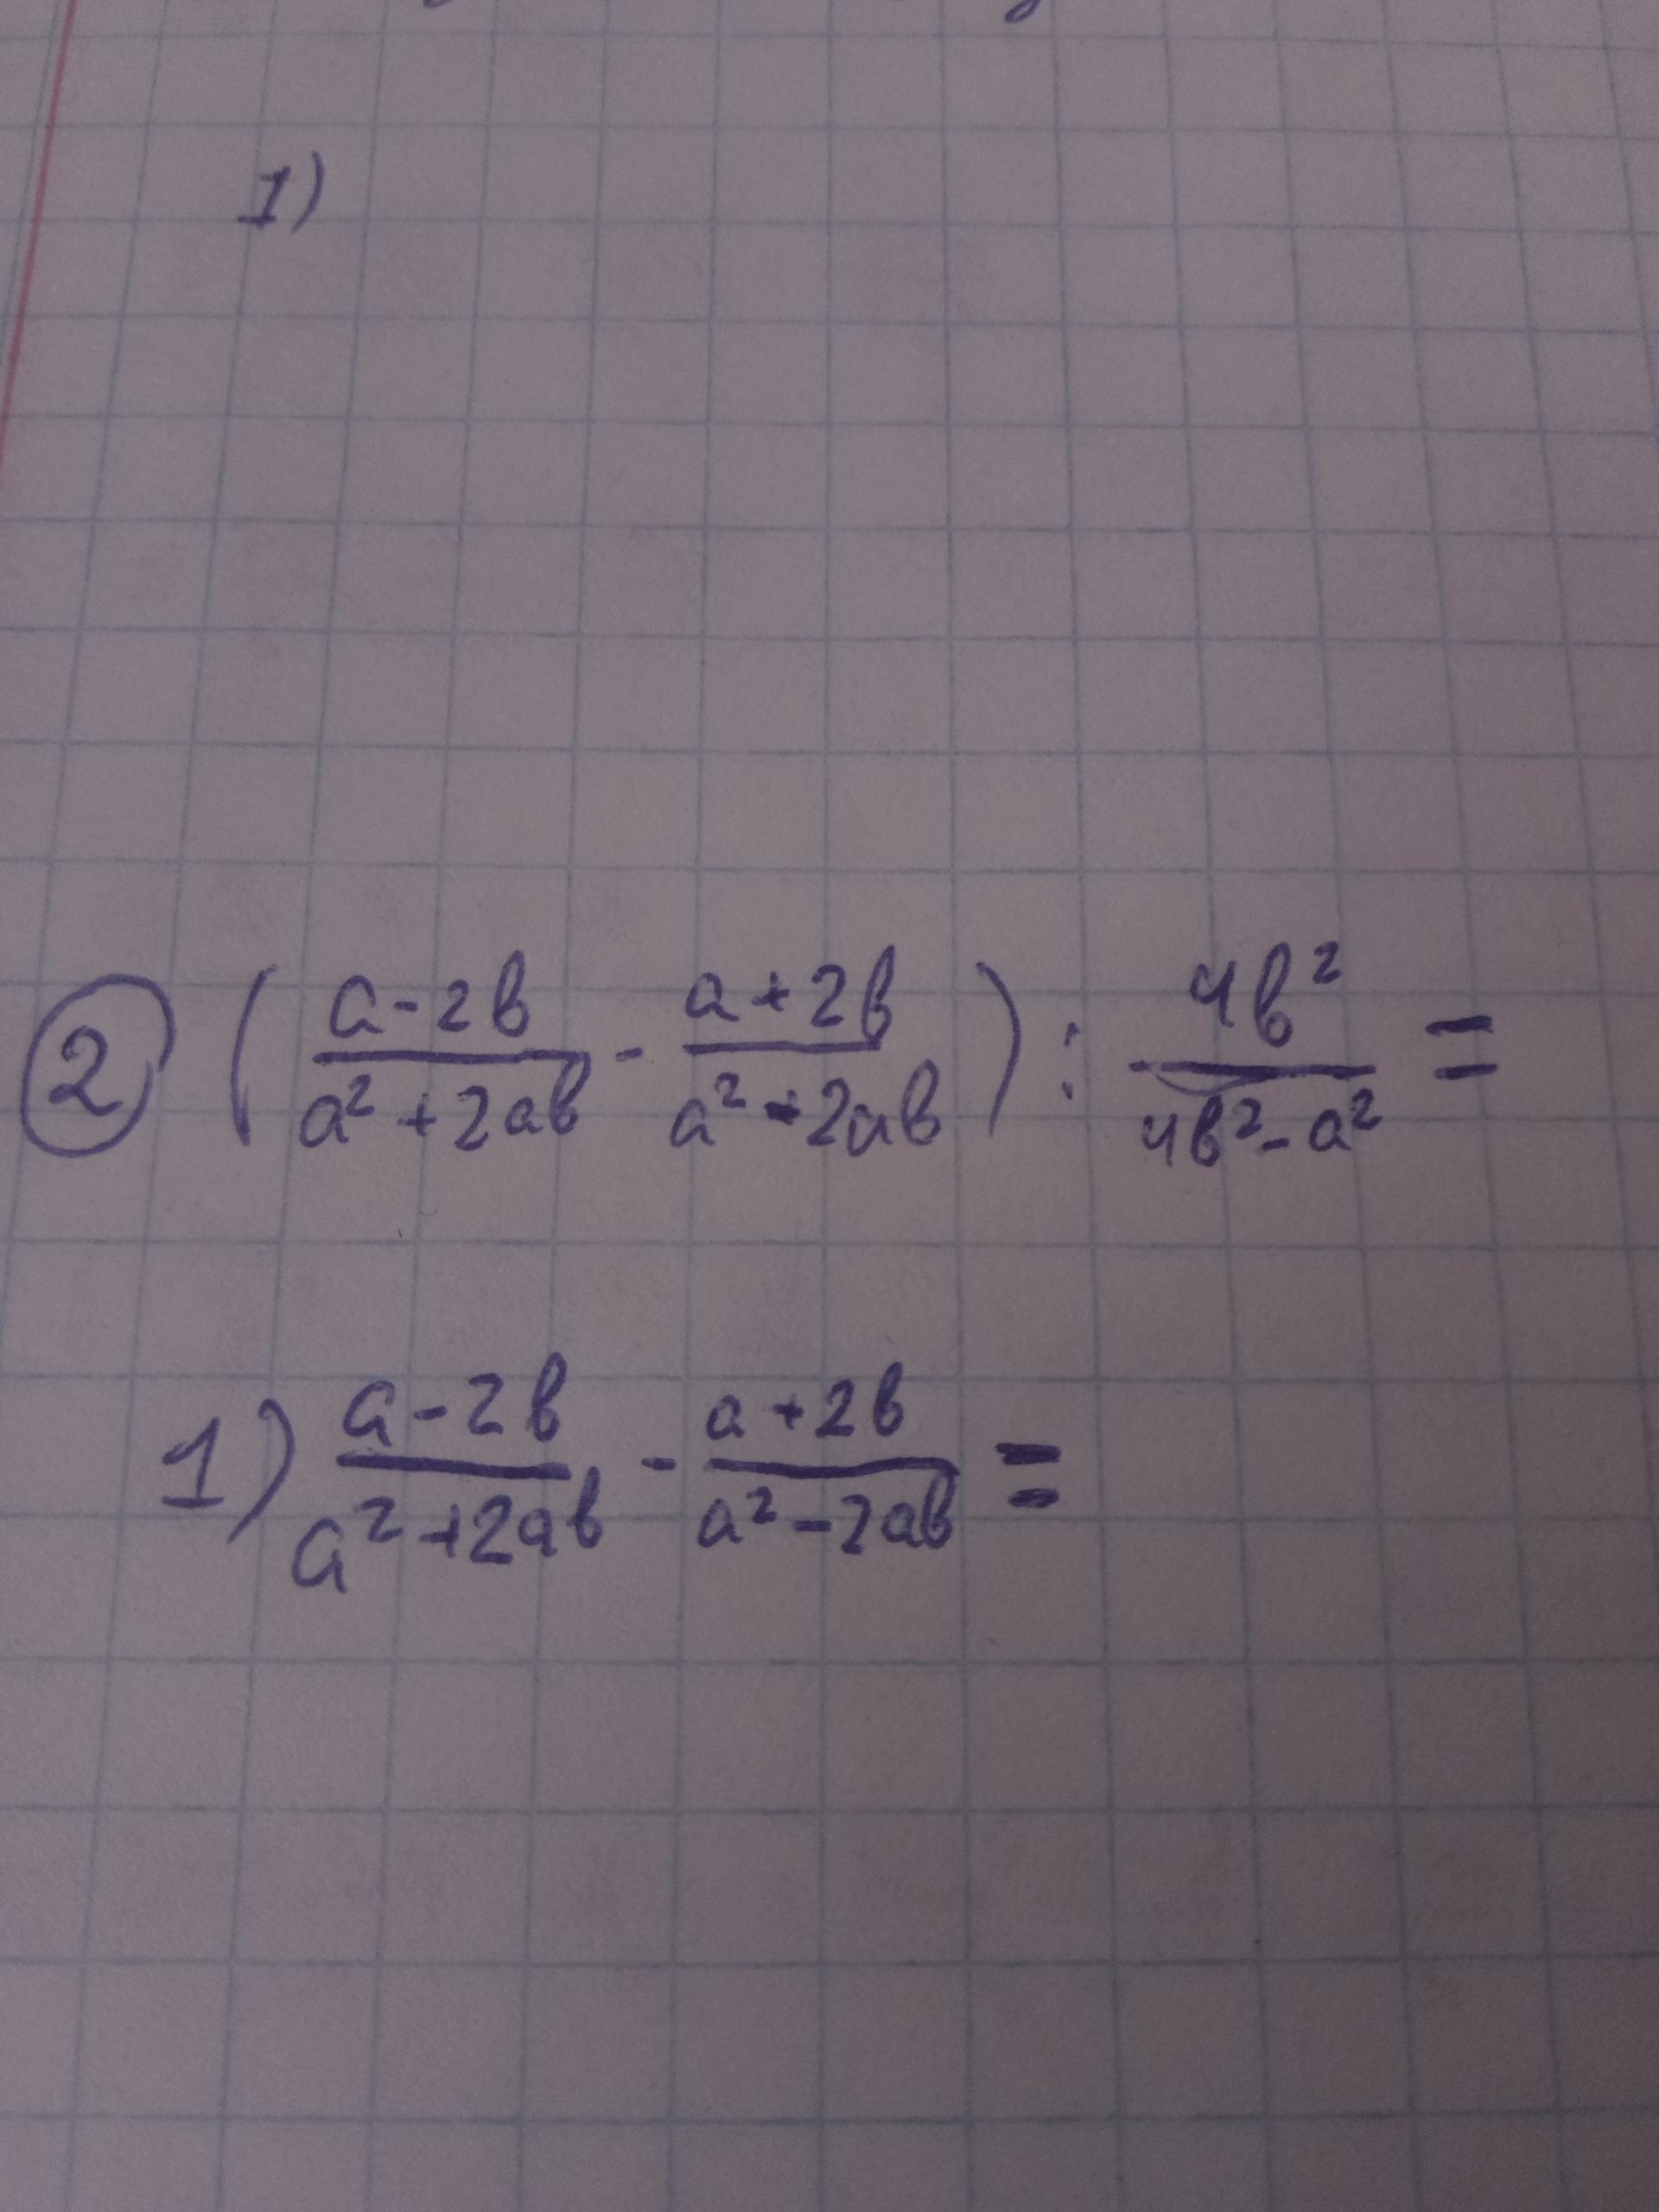 1)
2 (a-2b/a²+2ab - a+2b/a²-2ab) : 4b²/4b²-a² =
1) a-2b/a²+2ab - a+2b/a²-2ab =